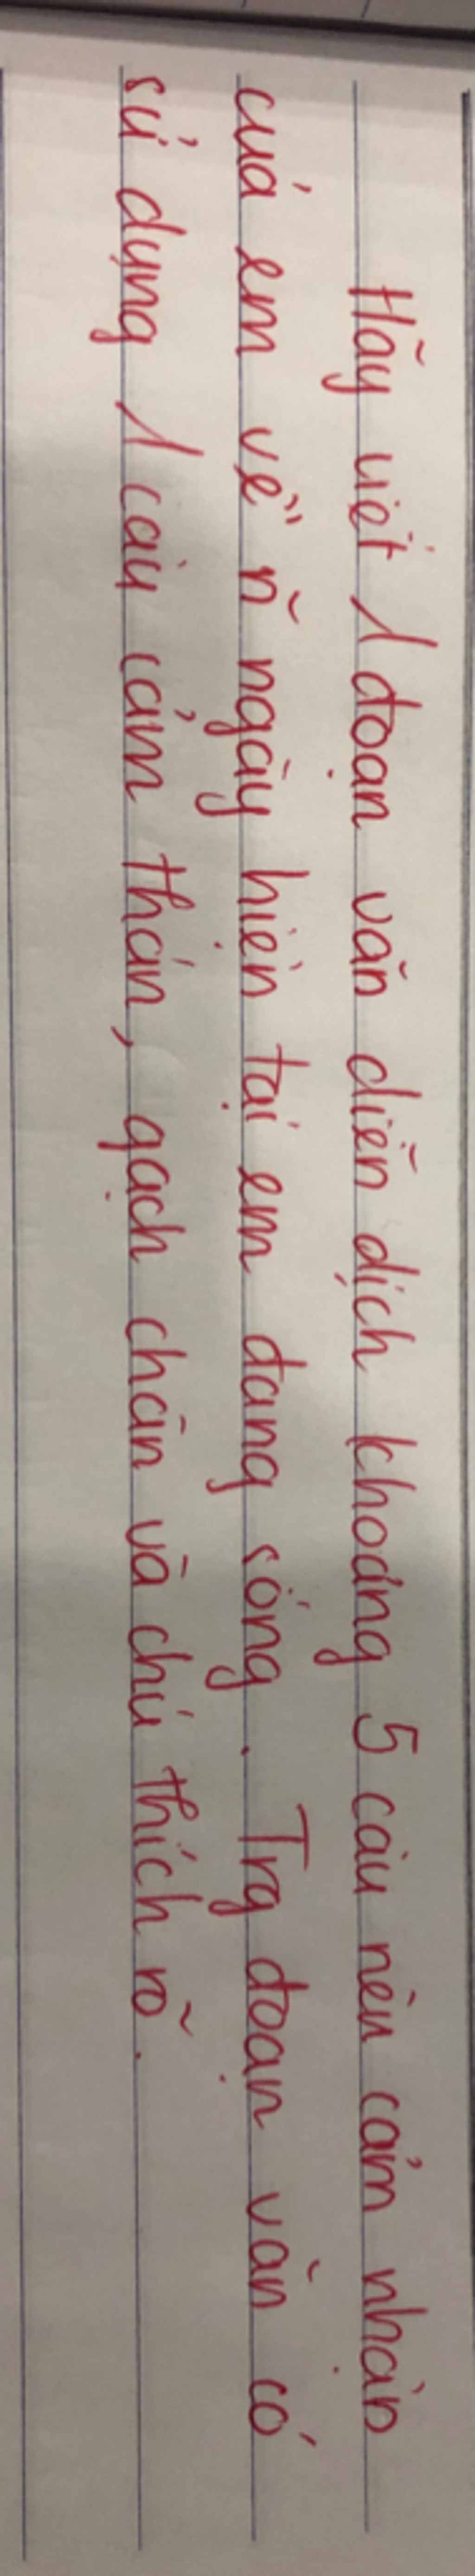 Hãy viết 1 đoạn văn diễn dịch khoảng 5 câu nêu cảm nhận
của em về n~ ngày hiện tại em đang sống. Trg đoạn văn có
sử dụng 1 câu cảm thán, gạch chân và chú thích rõ.